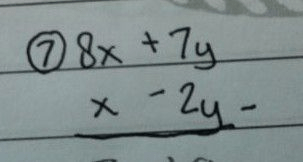 ⑦ 8x + 7y
x - 2y -